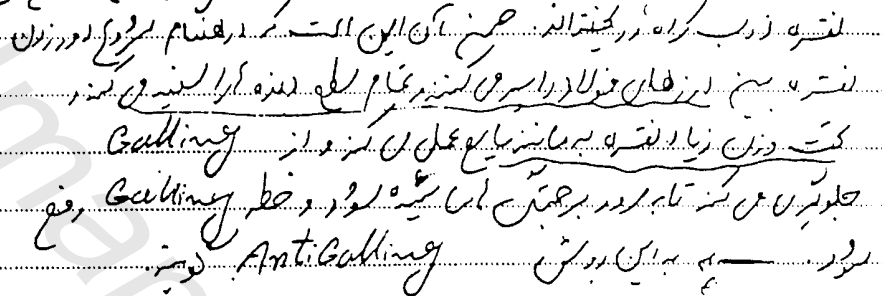 نقره ذوب کرده در ریخته‌اند. حسن آن این است که در هنگام شروع دور زدن
نقره بین درزهای فولاد را پر می کند و تمام سطح دهنه آنرا نقره می کند
تحت وزن زیاد نقره به مانند مایع عمل می کند و از Galling
جلوگیری می کند تا به مرور برجستگی ها سائیده شود و خطر Galling رفع
شود. به این روش AntiGalling گویند.